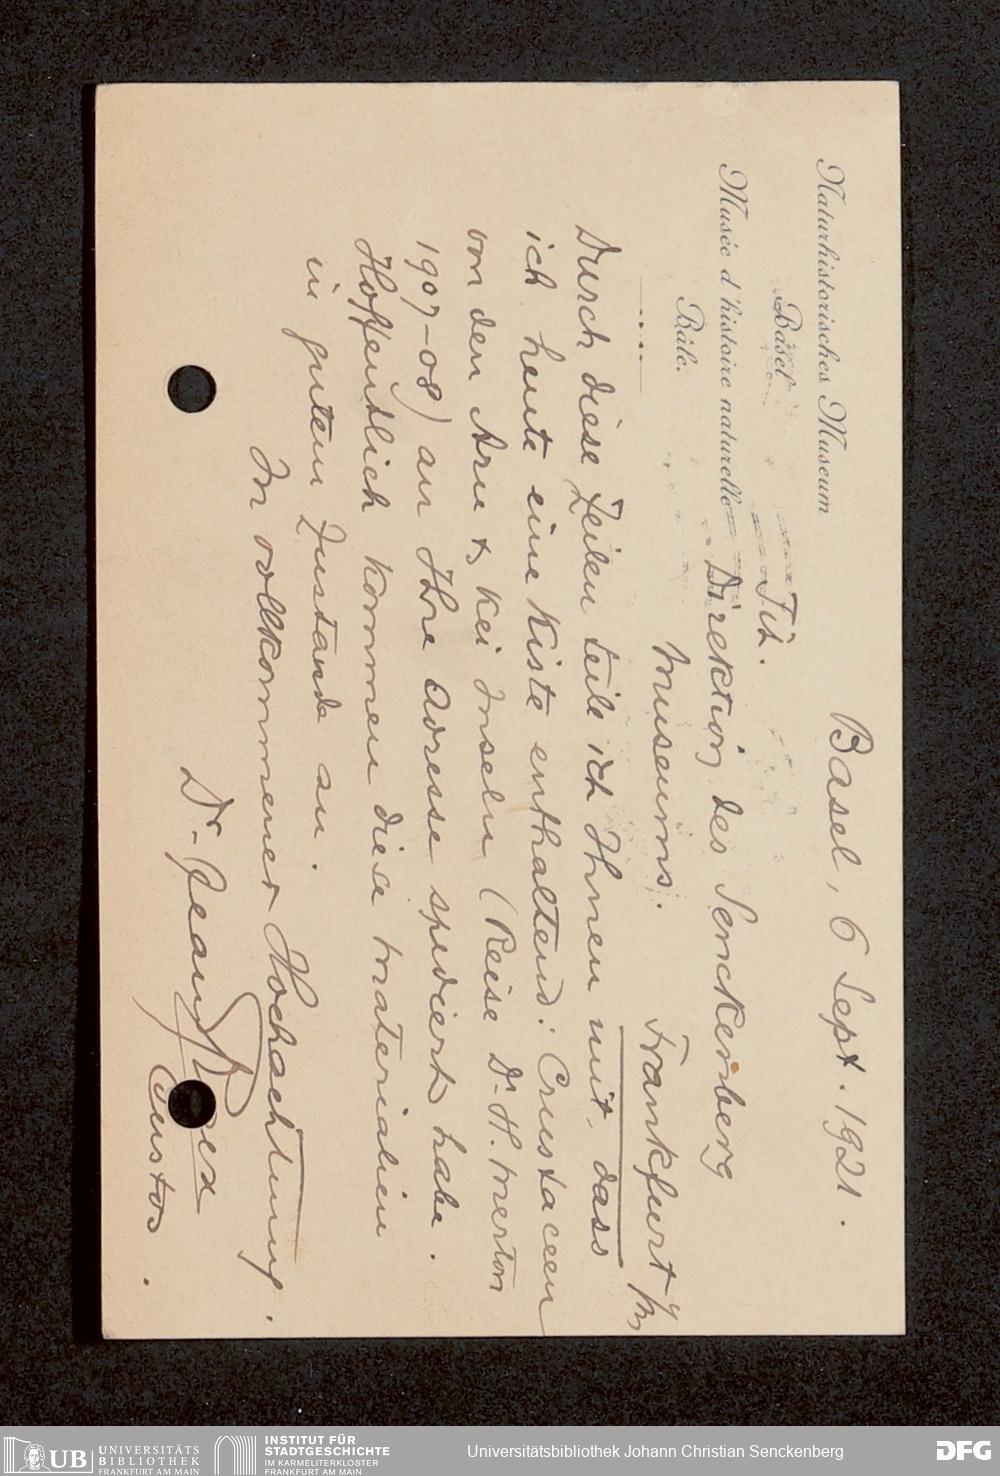 Naturhistorisches Museum
Basel
Musée d'histoire naturelle
Bâle.
Basel, 6 Sept. 1921.
Tit.
Direktion des Senckenberg
Museums.
Frankfurt a/M
Durch diese Zeilen teile ich Ihnen mit, dass
ich heute eine Kiste enthaltend: Crustaceen
von den Aru & Kei Inseln (Reise Dr. H. Merton
1907-08) an Ihre Adresse spediert habe.
Hoffentlich kommen diese Materialien
in gutem Zustande an.
In vollkommener Hochachtung.
Dr. Jean Roux
Custos.
UB UNIVERSITÄTS
BIBLIOTHEK
FRANKFURT AM MAIN
INSTITUT FÜR
STADTGESCHICHTE
IM KARMELITERKLOSTER
FRANKFURT AM MAIN
Universitätsbibliothek Johann Christian Senckenberg
DFG